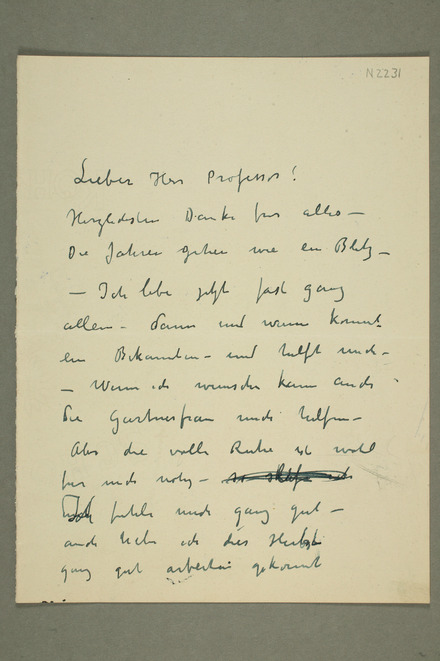 N2231
Lieber Herr Professor!
Herzlichsten Danke für alles –
Die Jahren gehen wie ein Blitz –
– Ich lebe jetzt fast ganz
allein – dann und wann kommt
ein Bekannten – und hilft mich –
– Wenn ich wünsche kann auch
die Gartnersfrau mich helfen –
Aber die volle Ruhe ist wohl
für mich nötig –
Ich fühle mich ganz gut –
auch habe ich dies Herbst
ganz gut arbeiten gekonnt